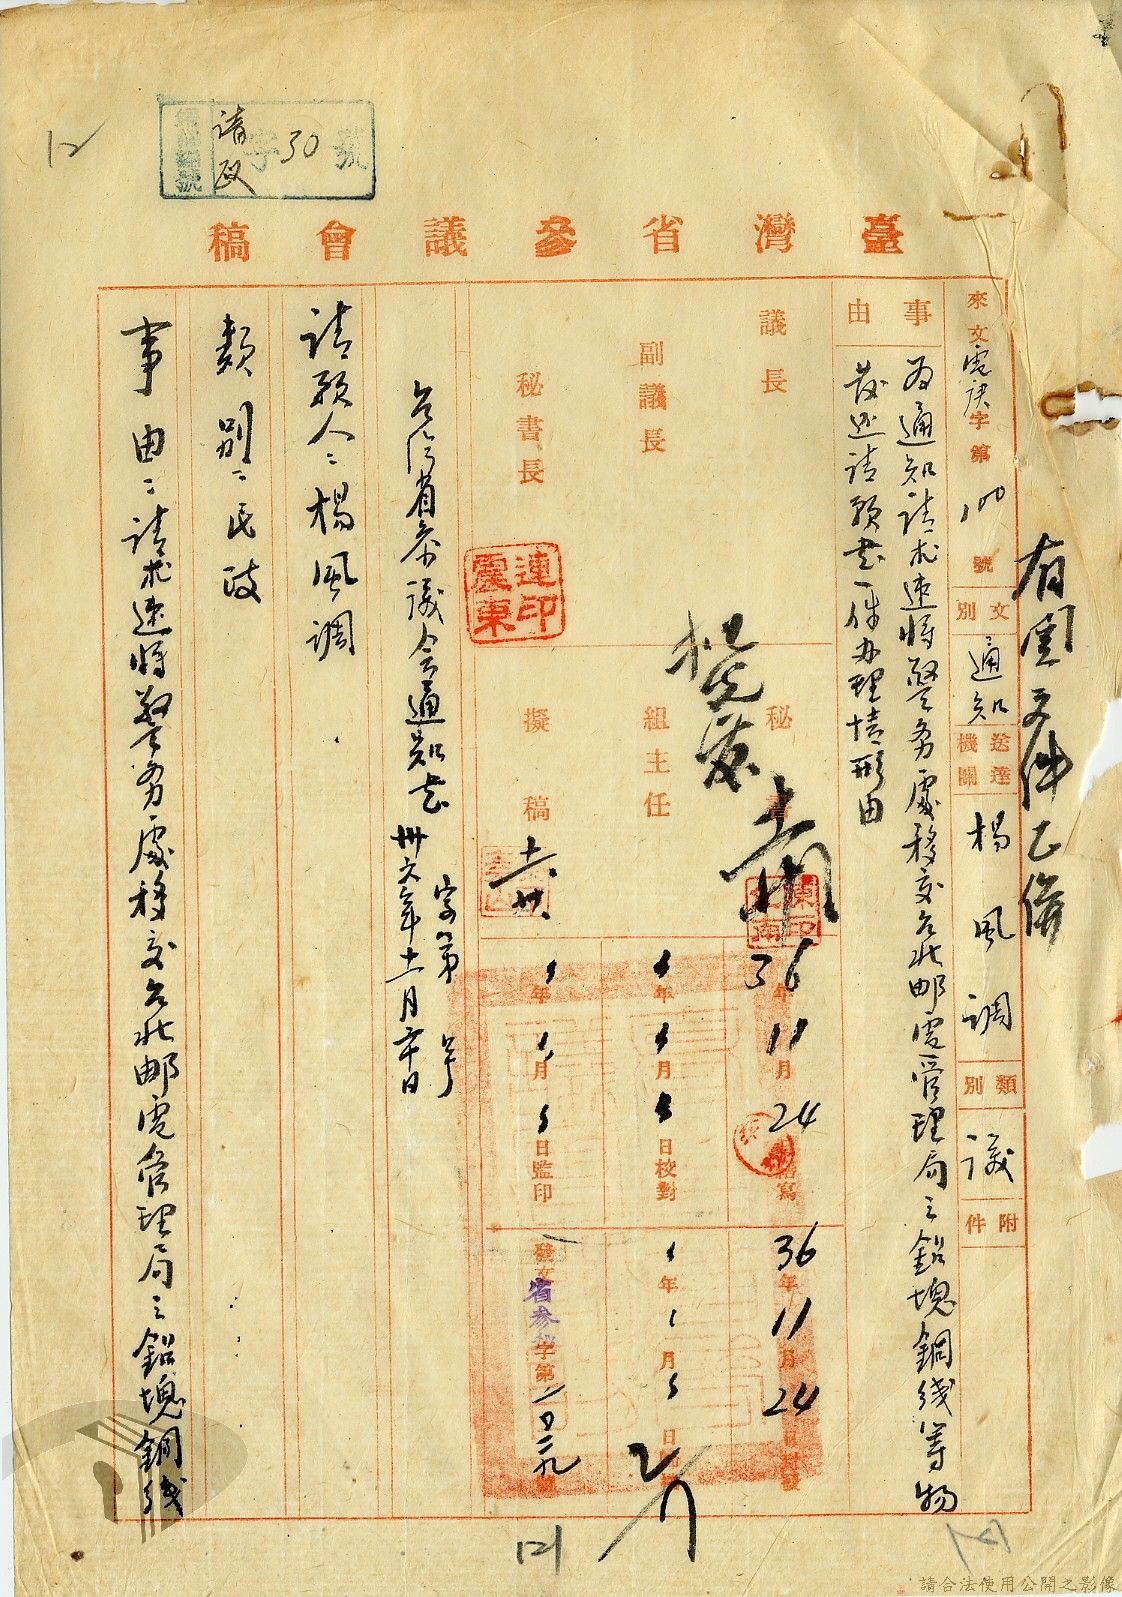 請政字30號
臺灣省參議會稿
來文電秧字第100號
文別 通知
送達機關 楊風調
類別 議
附件
有関文件乙併
事由
為通知請求速将警务處移交台北邮電管理局之鋁塊銅线等物
發还請願书一件办理情形由
議長
副議長
秘書長
連震東印
秘書
組主任
擬稿
36年11月24日繕寫
年月日校對
年月日監印
36年11月24日封發
年月日
發文省参秘字第號
台湾省参議会通知书
字第 号
卅六年十一月二十日
請願人：楊風調
類別：民政
事由：請求速将警务處移交台北邮電管理局之鋁塊銅线
請合法使用公開之影像